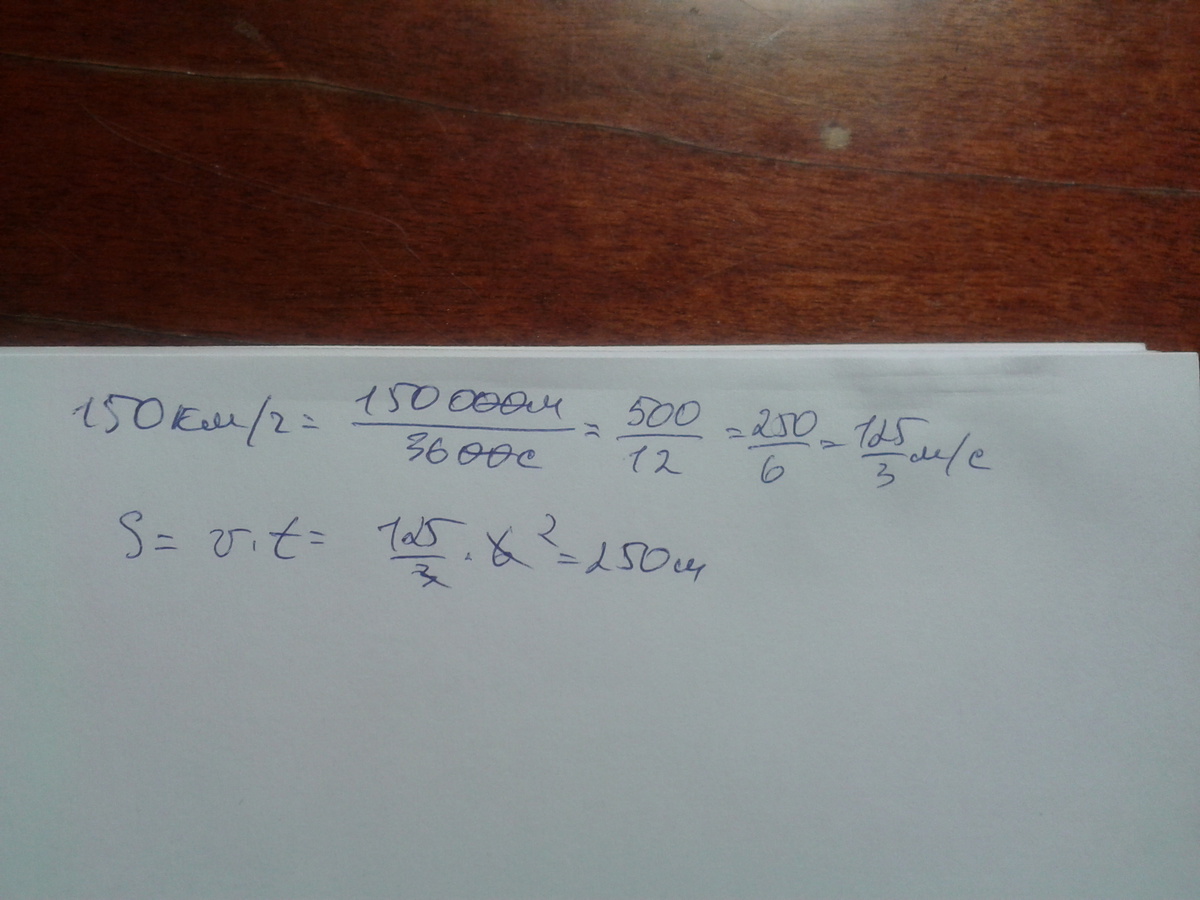 150км/ч = 150000м/3600с = 500/12 = 250/6 = 125/3 м/с
S = v · t = 125/3 · 6 2 = 250м